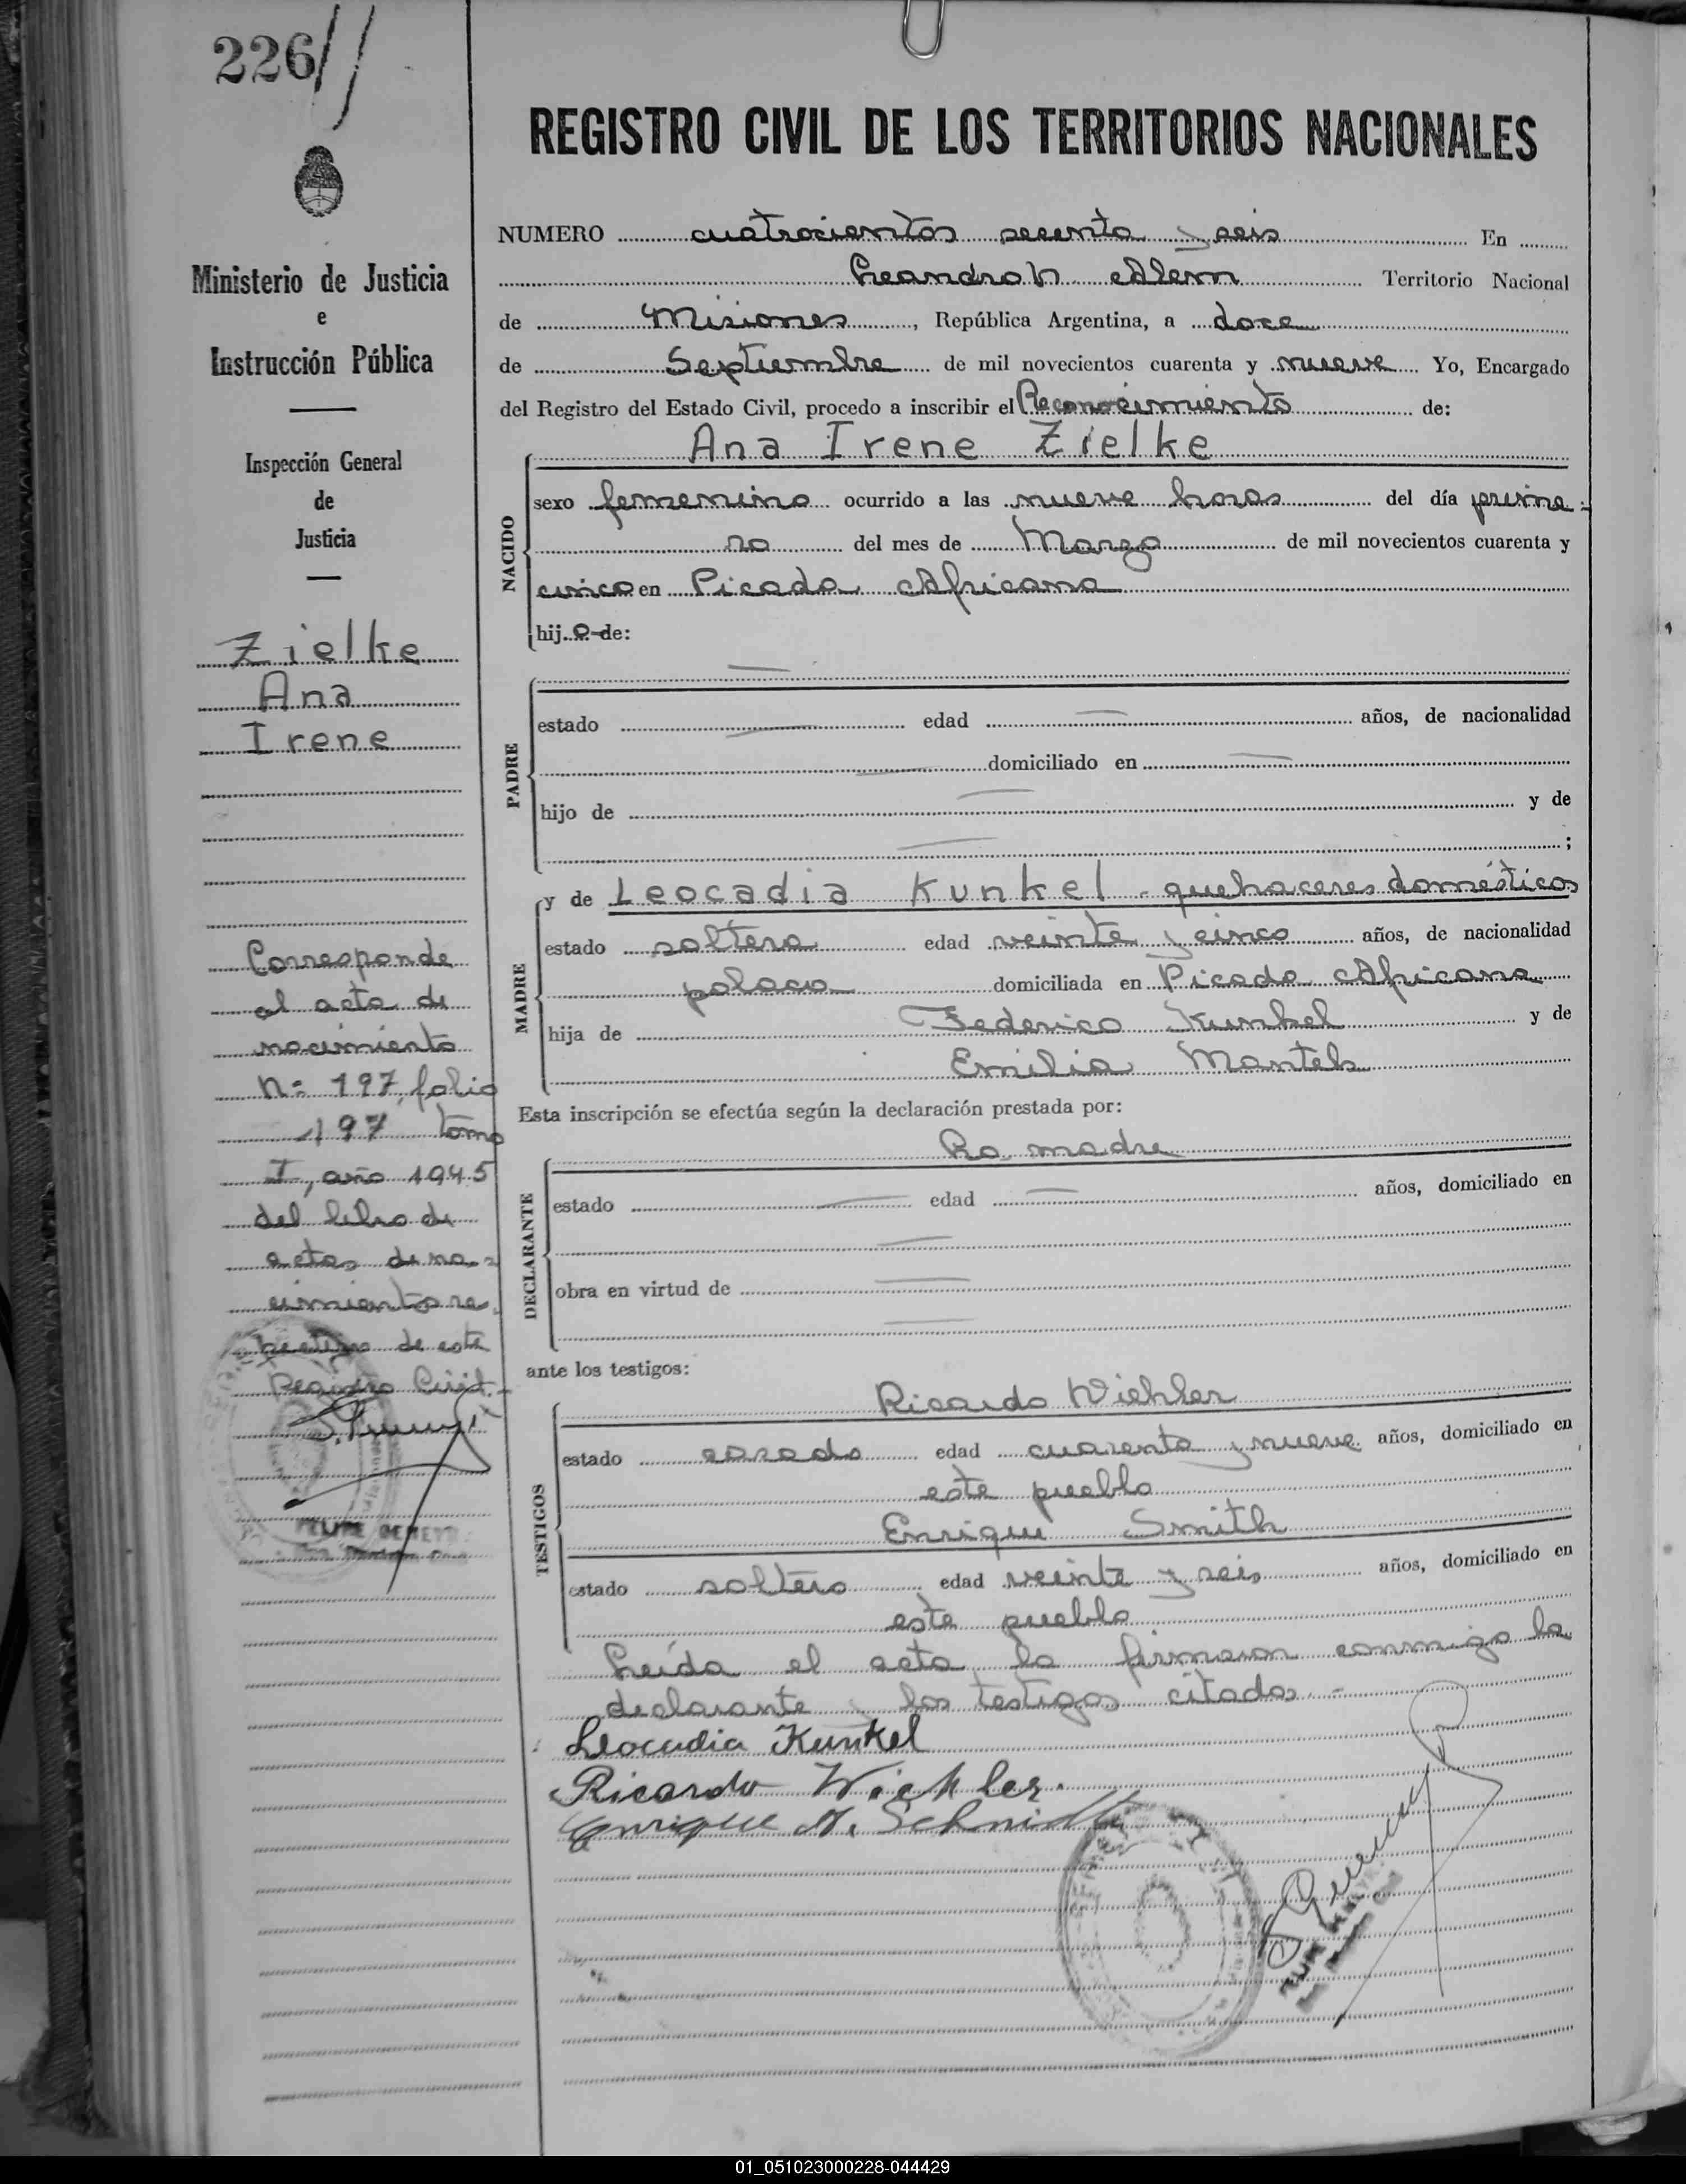 226//
REGISTRO CIVIL DE LOS TERRITORIOS NACIONALES
Ministerio de Justicia
e
Instrucción Pública
Inspección General
de
Justicia
Zielke
Ana
Irene
Corresponde
al acta de
nacimiento
Nº 197, folio
197 tomo
I, año 1945
del libro de
actas de na=
cimiento res
pectivo de este
Registro Civil.-
NUMERO cuatrocientos secenta y seis En
Leandro N Alem Territorio Nacional
de Misiones, República Argentina, a doce
de Septiembre de mil novecientos cuarenta y nueve Yo, Encargado
del Registro del Estado Civil, procedo a inscribir el Reconocimiento de:
NACIDO
Ana Irene Zielke
sexo femenino ocurrido a las nueve horas del día prime=
ro del mes de Marzo de mil novecientos cuarenta y
cinco en Picada Africana
hij a de:
PADRE
estado edad años, de nacionalidad
domiciliado en
hijo de y de
;
MADRE
y de Leocadia Kunkel - quehaceres domésticos
estado soltera edad veinte y cinco años, de nacionalidad
polaca domiciliada en Picada Africana
hija de Federico Kunkel y de
Emilia Mantek
Esta inscripción se efectúa según la declaración prestada por:
DECLARANTE
La madre
estado edad años, domiciliado en
obra en virtud de
ante los testigos:
TESTIGOS
Ricardo Wiehler
estado casado edad cuarenta y nueve años, domiciliado en
este pueblo
Enrique Smith
estado soltero edad veinte y seis años, domiciliado en
este pueblo
Leída el acta la firmaron conmigo la
declarante y los testigos citados.-
Leocadia Kunkel
Ricardo Wiehler.
Enrique A. Schmidt
01_051023000228-044429